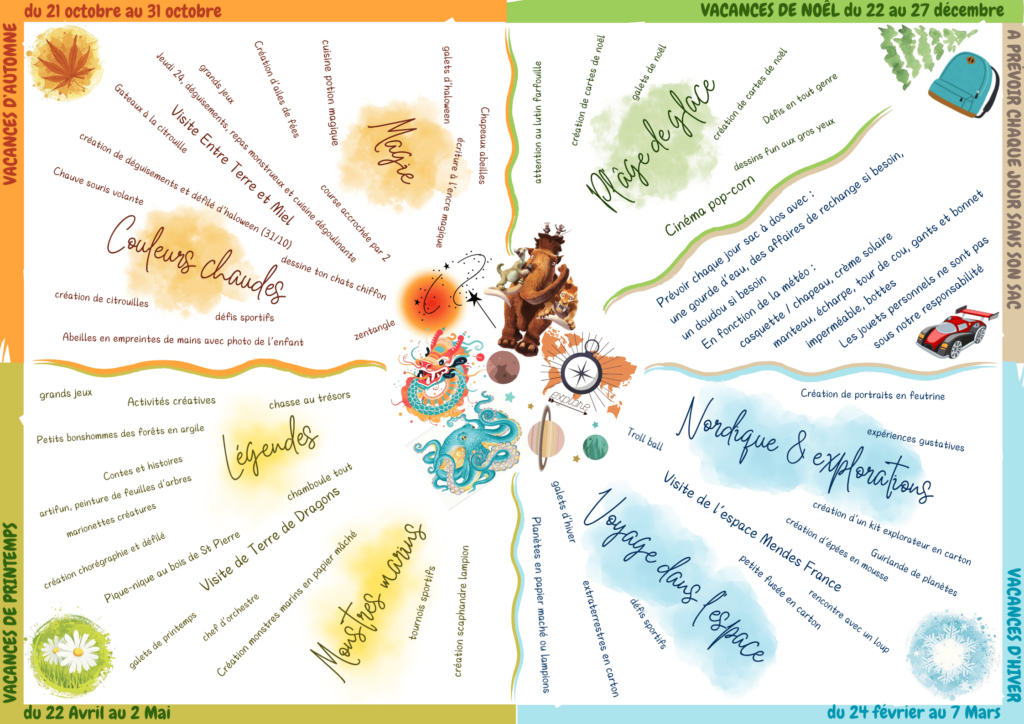 du 21 octobre au 31 octobre
VACANCES D'AUTOMNE
Jeudi 24, déguisements, repas monstrueux et cuisine dégoulinante
grands jeux
Création d'ailes de fées
cuisine potion magique
galets d'haloween
Chapeaux abeilles
écriture à l'encre magique
Magie
Gateaux à la citrouille
Visite Entre Terre et Miel
course accrochée par 2
création de déguisements et défilé d'haloween (31/10)
Chauve souris volante
Couleurs chaudes
dessine ton chats chiffon
création de citrouilles
défis sportifs
zentangle
Abeilles en empreintes de mains avec photo de l'enfant
VACANCES DE NOËL du 22 au 27 décembre
attention au lutin farfouille
création de cartes de noël
galets de noël
création de cartes de noël
Défis en tout genre
dessins fun aux gros yeux
Plâge de glace
Cinéma pop-corn
A PRÉVOIR CHAQUE JOUR SANS SON SAC
Prévoir chaque jour sac à dos avec :
une gourde d'eau, des affaires de rechange si besoin,
un doudou si besoin
En fonction de la météo :
casquette / chapeau, crème solaire
manteau, écharpe, tour de cou, gants et bonnet
imperméable, bottes
Les jouets personnels ne sont pas
sous notre responsabilité
explore
VACANCES DE PRINTEMPS
grands jeux
Activités créatives
chasse au trésors
Petits bonshommes des forêts en argile
Légendes
Contes et histoires
artifun, peinture de feuilles d'arbres
marionettes créatures
création chorégraphie et défilé
Pique-nique au bois de St Pierre
Visite de Terre de Dragons
chamboule tout
galets de printemps
chef d'orchestre
Création monstres marins en papier mâché
Monstres marins
tournois sportifs
création scaphandre lampion
du 22 Avril au 2 Mai
Création de portraits en feutrine
Troll ball
Nordique & explorations
expériences gustatives
Visite de l'espace Mendes France
création d'un kit explorateur en carton
création d'épées en mousse
Guirlande de planètes
petite fusée en carton
rencontre avec un loup
galets d'hiver
Voyage dans l'espace
Planètes en papier maché ou lampions
extraterrestres en carton
défis sportifs
VACANCES D'HIVER
du 24 février au 7 Mars